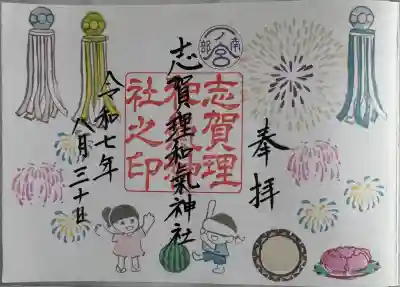 奉拝
南部
一ノ宮
志賀理
和氣神
社之印
志賀理和氣神社
令和七年
八月三十日